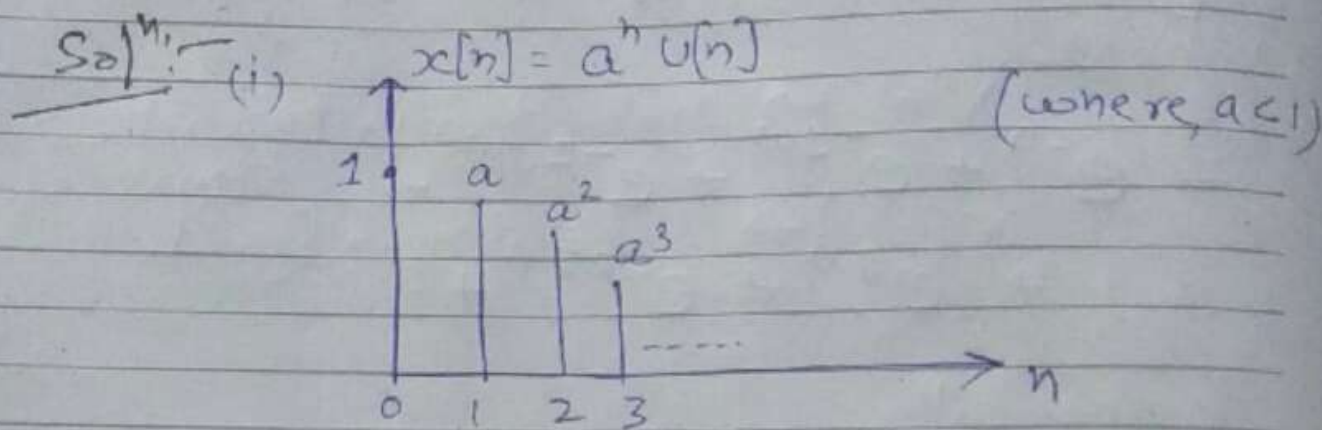 Solⁿ:- (i) x[n] = aⁿ U[n]
(where, a<1)
1 a a² a³
-----
n
0 1 2 3